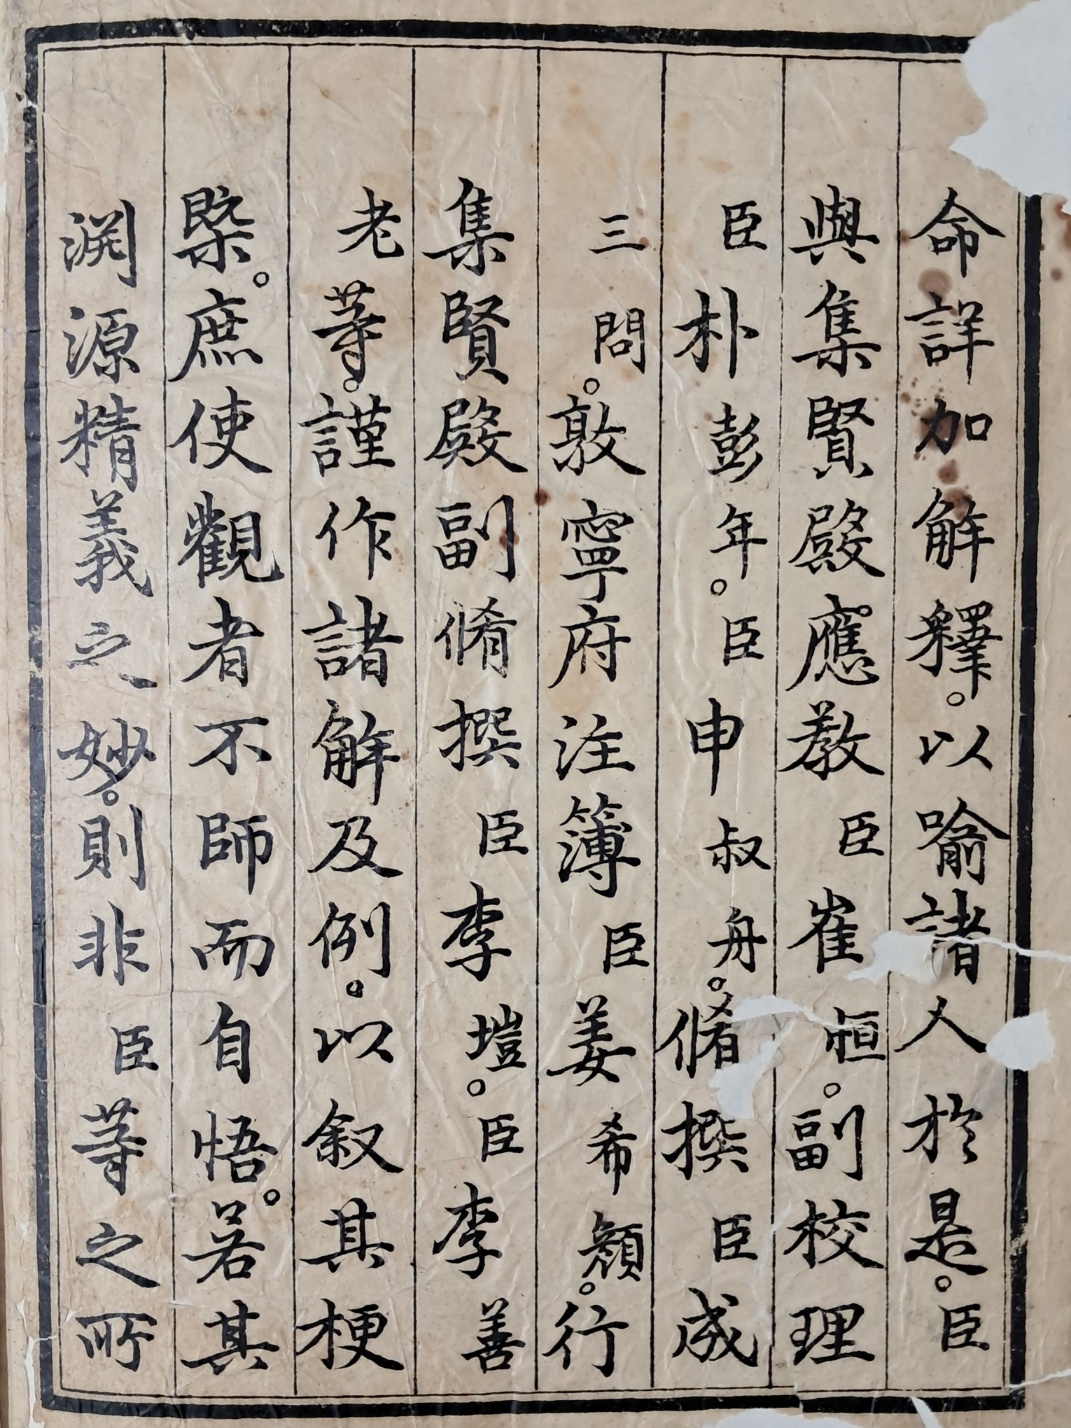 命詳加解釋。以喩諸人於是。臣
與集賢殿應教臣崔恒。副校理
臣朴彭年。臣申叔舟。脩撰臣成
三問。敦寧府注簿臣姜希顏。行
集賢殿副脩撰臣李塏。臣李善
老等。謹作諸解及例。以叙其梗
槩。庶使觀者不師而自悟。若其
渕源精義之妙。則非臣等之所